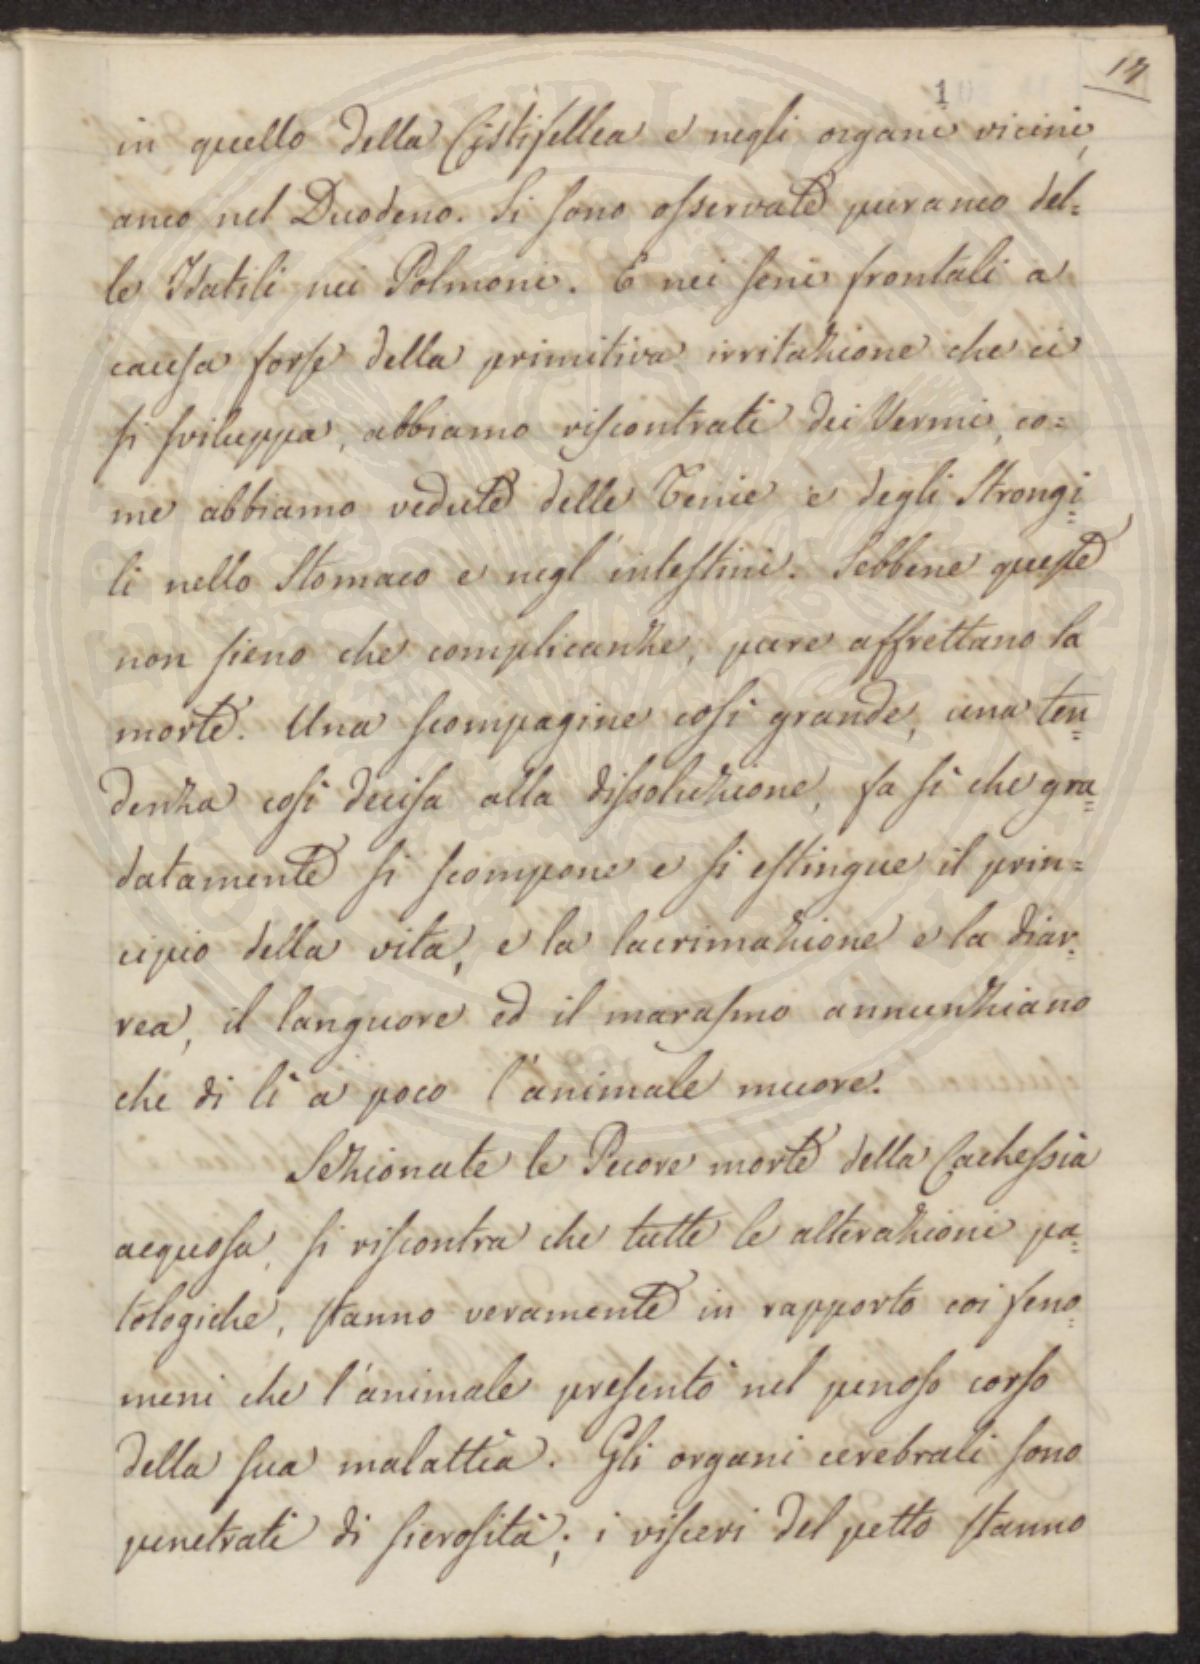 17
1
in quello della Cistifellea e negli organi vicini,
anco nel Duodeno. Si sono osservate pur anco del=
le Idatili nei Polmoni. E nei seni frontali a
causa forse della primitiva irritazione che ci
si sviluppa, abbiamo riscontrati dei Vermi, co=
me abbiamo vedute delle Tenie e degli Strongi=
li nello Stomaco e negl'intestini. Sebbene queste
non sieno che complicanze, pure affrettano la
morte. Una scompagine così grande, una ten=
denza così decisa alla dissoluzione, fa sì che gra=
datamente si scompone e si estingue il prin=
cipio della vita, e la lacrimazione e la diar=
rea, il languore ed il marasmo annunziano
che di lì a poco l'animale muore.
Sezionate le Pecore morte della Cachessia
acquosa, si riscontra che tutte le alterazioni pa=
tologiche, stanno veramente in rapporto coi feno=
meni che l'animale presentò nel penoso corso
della sua malattia. Gli organi cerebrali sono
penetrati di sierosità; i visceri del petto stanno